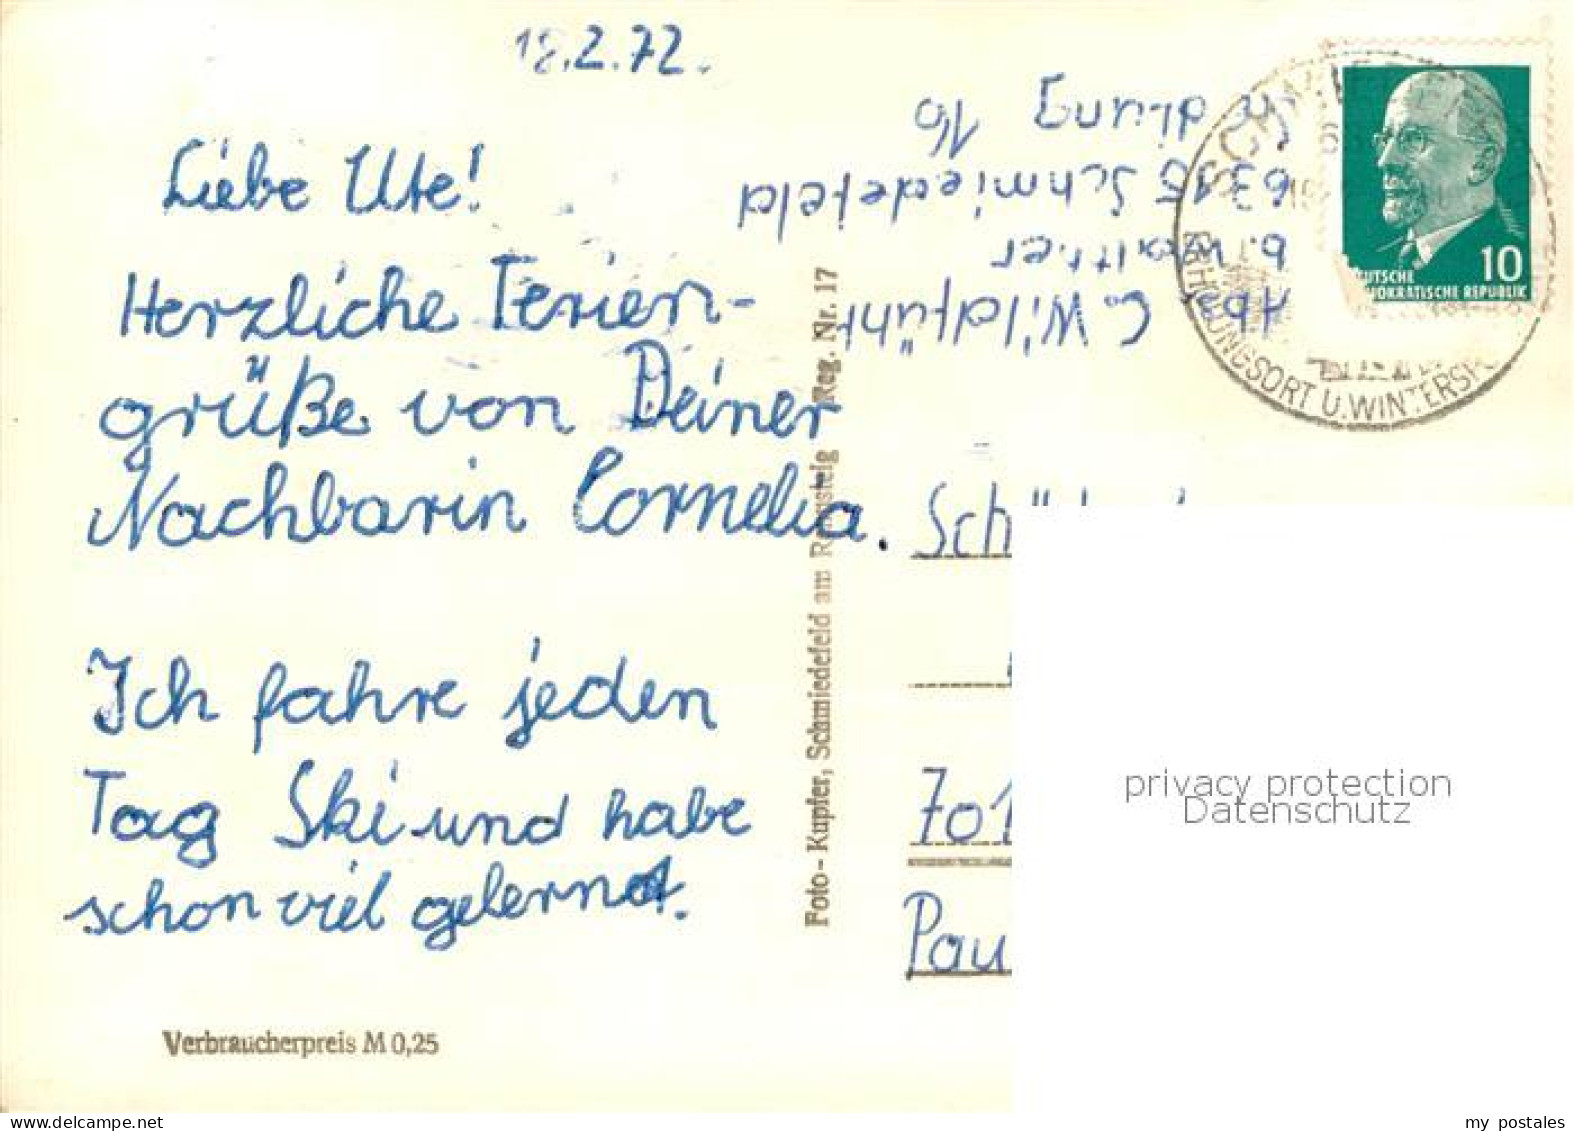 18.2.72.
Liebe Ute!
Herzliche Ferien-
grüße von Deiner
Nachbarin Cornelia.
Ich fahre jeden
Tag Ski und habe
schon viel gelernt.
Verbraucherpreis M 0,25
Foto - Kupfer, Schmiedefeld am Rennsteig Reg. Nr. 17
C. Wildführ
b. Walther
6315 Schmiedefeld
16
10
DEUTSCHE
DEMOKRATISCHE REPUBLIK
ERHOLUNGSORT U. WINTERSP
Sch
701
Pau
privacy protection
Datenschutz
my postales